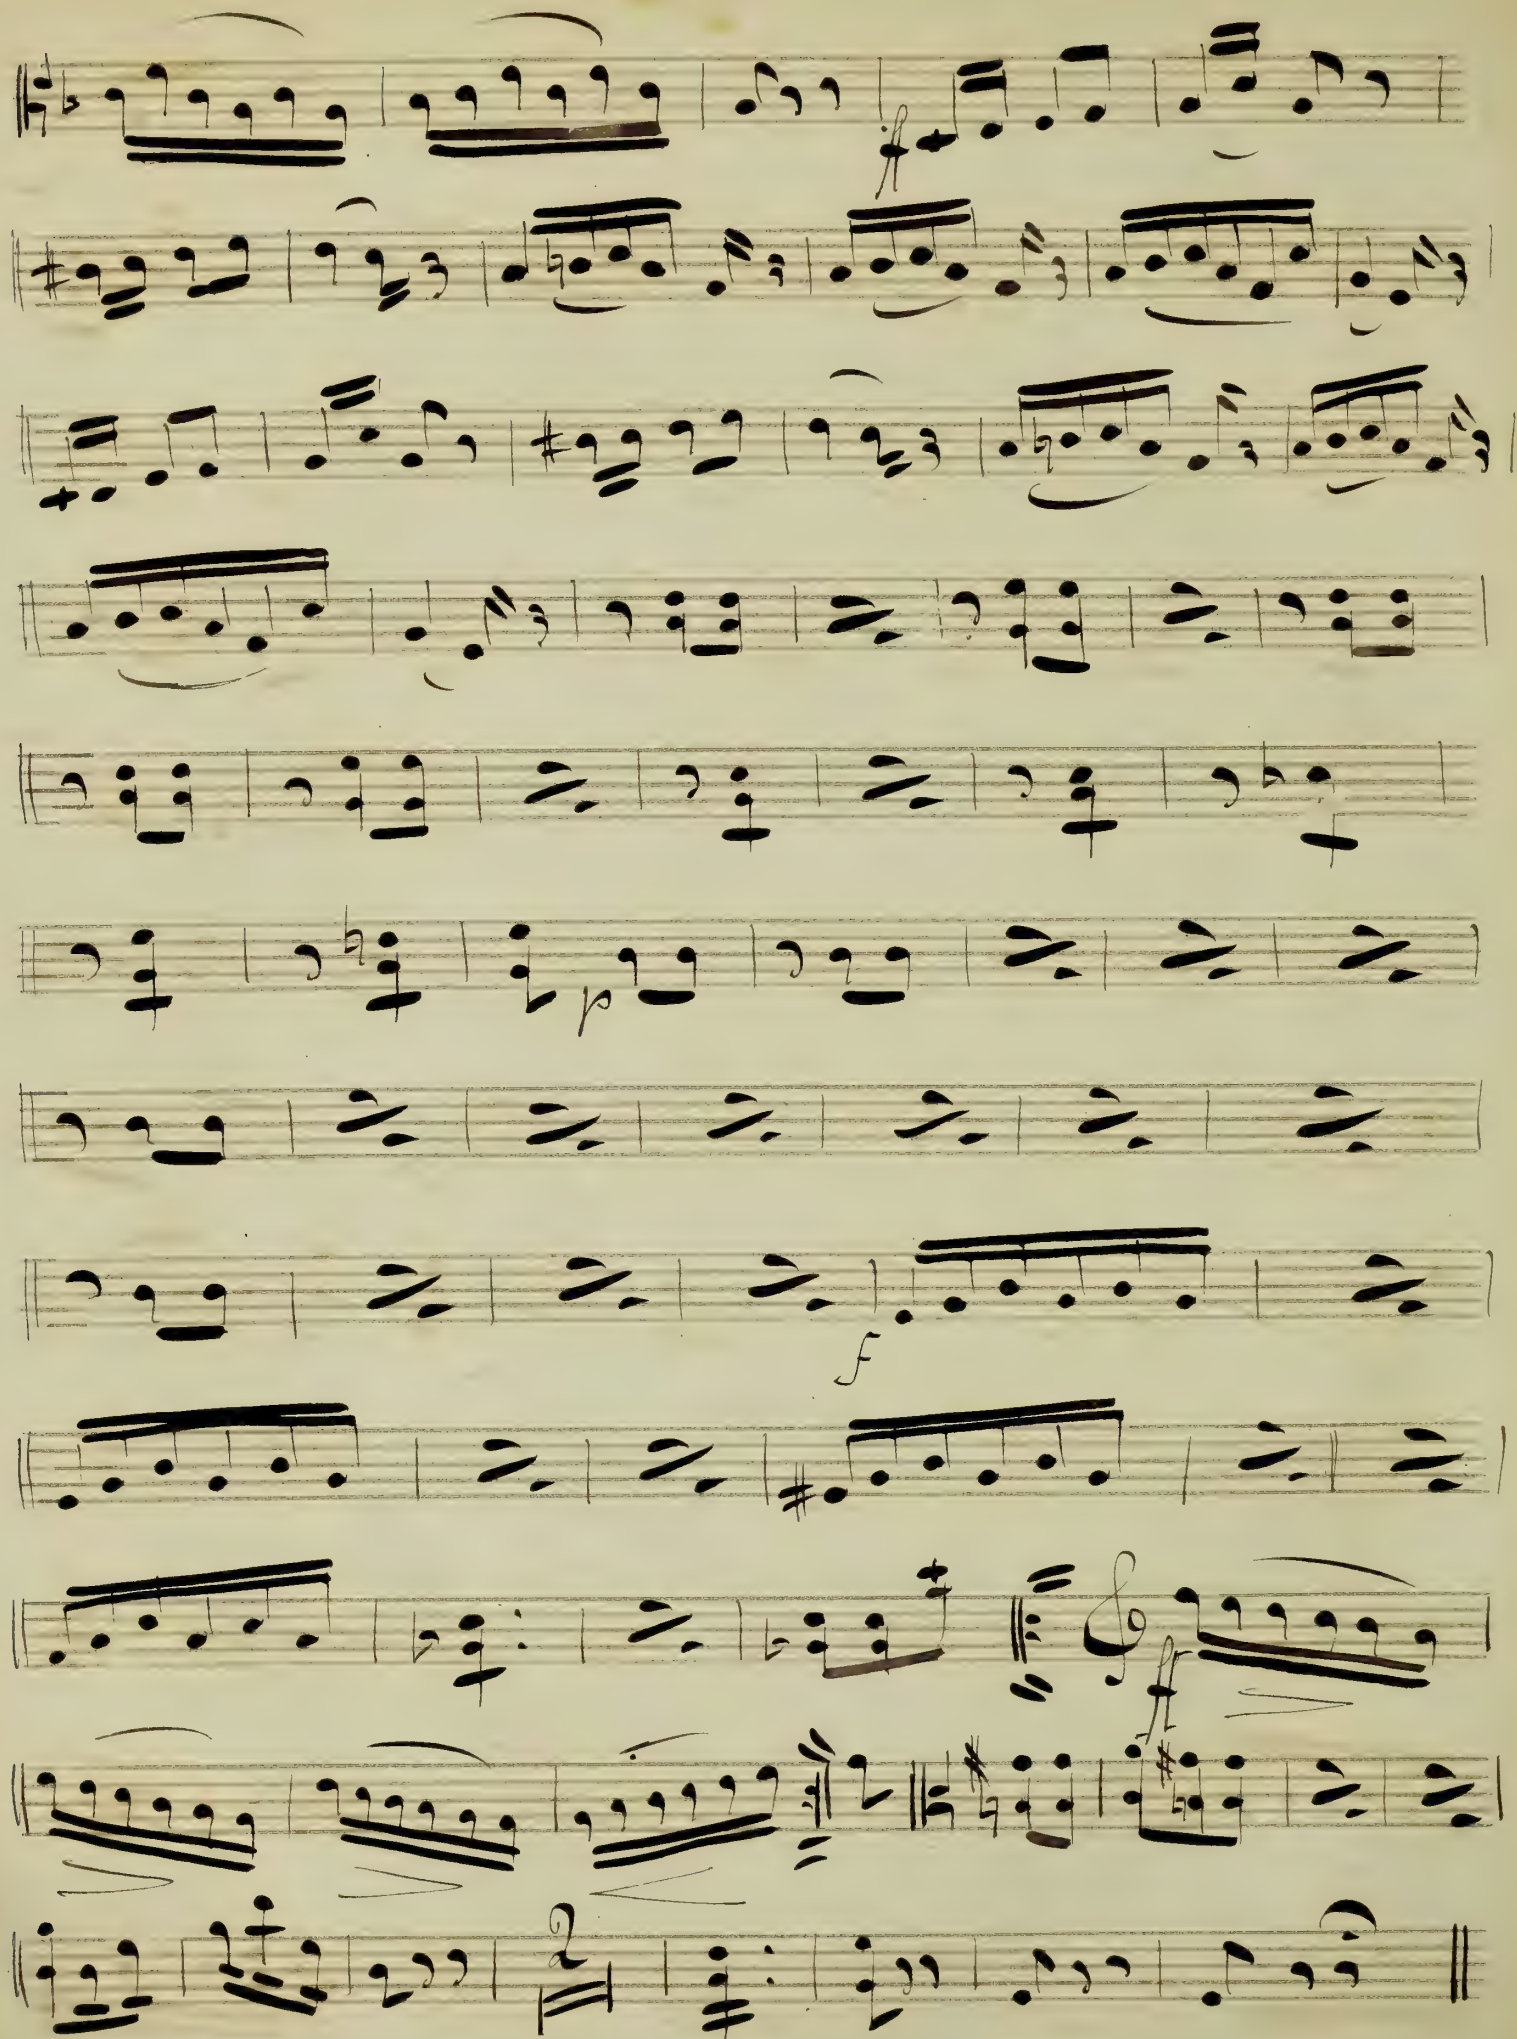 ff
p
f
ff
2